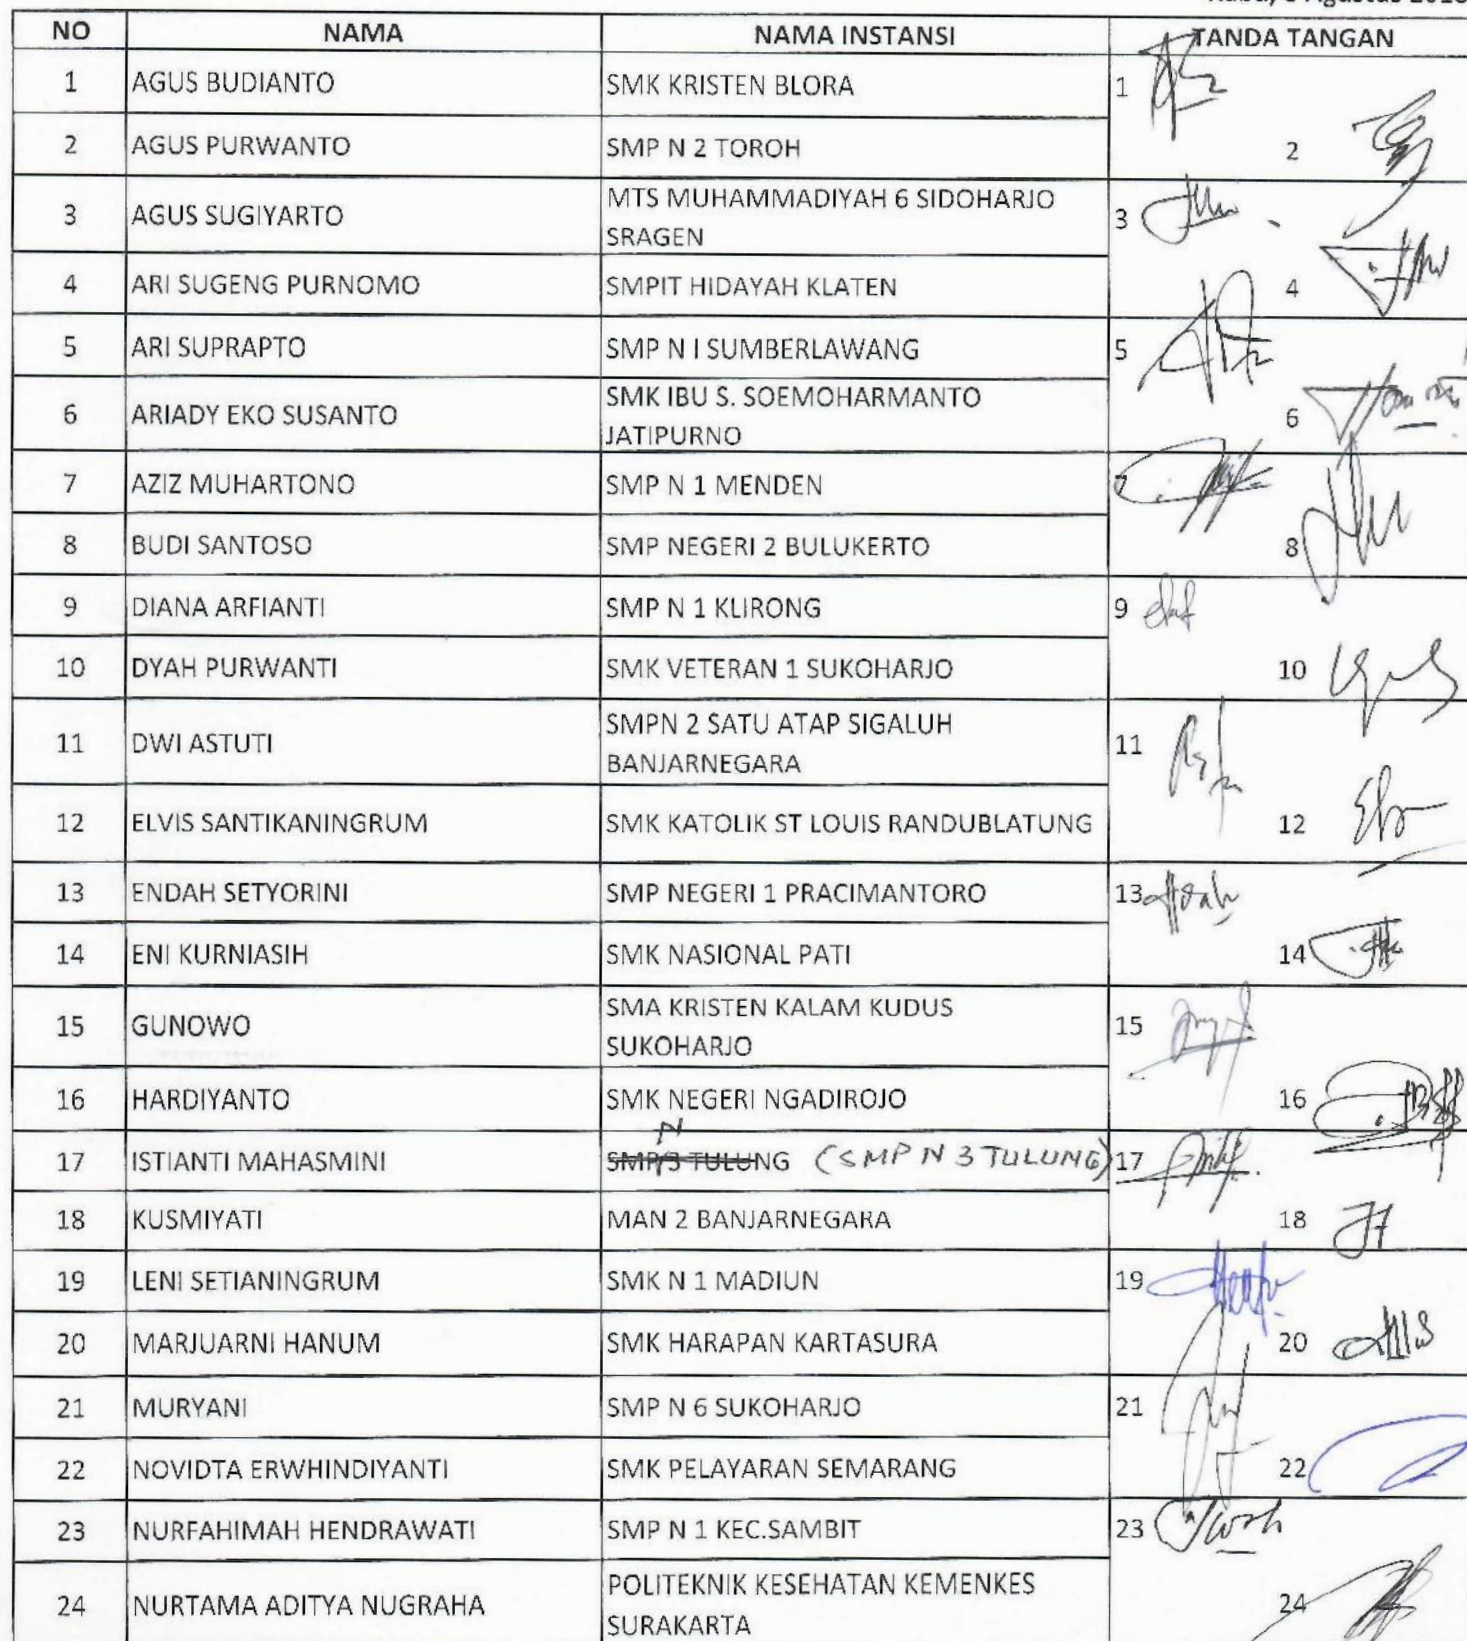 Agustus
NO NAMA NAMA INSTANSI TANDA TANGAN
1 AGUS BUDIANTO SMK KRISTEN BLORA 1
2 AGUS PURWANTO SMP N 2 TOROH 2
3 AGUS SUGIYARTO MTS MUHAMMADIYAH 6 SIDOHARJO 3
SRAGEN
4 ARI SUGENG PURNOMO SMPIT HIDAYAH KLATEN 4
5 ARI SUPRAPTO SMP N I SUMBERLAWANG 5
6 ARIADY EKO SUSANTO SMK IBU S. SOEMOHARMANTO 6
JATIPURNO
7 AZIZ MUHARTONO SMP N 1 MENDEN 7
8 BUDI SANTOSO SMP NEGERI 2 BULUKERTO 8
9 DIANA ARFIANTI SMP N 1 KLIRONG 9
10 DYAH PURWANTI SMK VETERAN 1 SUKOHARJO 10
11 DWI ASTUTI SMPN 2 SATU ATAP SIGALUH 11
BANJARNEGARA
12 ELVIS SANTIKANINGRUM SMK KATOLIK ST LOUIS RANDUBLATUNG 12
13 ENDAH SETYORINI SMP NEGERI 1 PRACIMANTORO 13
14 ENI KURNIASIH SMK NASIONAL PATI 14
15 GUNOWO SMA KRISTEN KALAM KUDUS 15
SUKOHARJO
16 HARDIYANTO SMK NEGERI NGADIROJO 16
N
17 ISTIANTI MAHASMINI SMP 3 TULUNG (SMP N 3 TULUNG) 17
18 KUSMIYATI MAN 2 BANJARNEGARA 18
19 LENI SETIANINGRUM SMK N 1 MADIUN 19
20 MARJUARNI HANUM SMK HARAPAN KARTASURA 20
21 MURYANI SMP N 6 SUKOHARJO 21
22 NOVIDTA ERWHINDIYANTI SMK PELAYARAN SEMARANG 22
23 NURFAHIMAH HENDRAWATI SMP N 1 KEC.SAMBIT 23
24 NURTAMA ADITYA NUGRAHA POLITEKNIK KESEHATAN KEMENKES 24
SURAKARTA